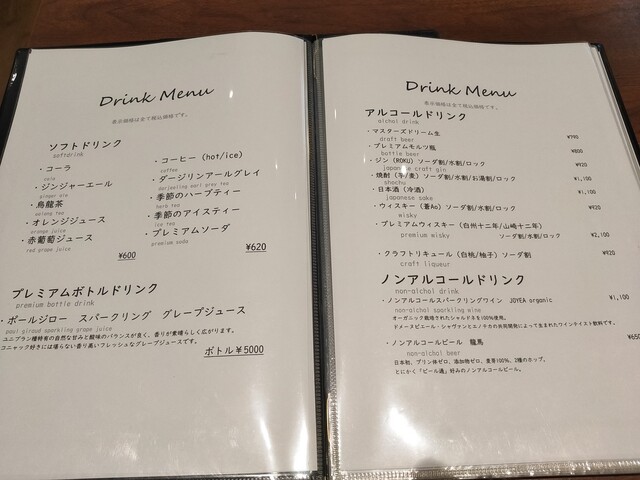 Drink Menu
表示価格は全て税込価格です。
ソフトドリンク
softdrink
・コーラ
・ジンジャーエール
ginger ale
・烏龍茶
oolong tea
・オレンジジュース
orange juice
・赤葡萄ジュース
red grape juice
¥600
・コーヒー (hot/ice)
coffee
・ダージリンアールグレイ
darjeeling earl grey tea
・季節のハーブティー
herb tea
・季節のアイスティー
ice tea
・プレミアムソーダ
premium soda
¥620
プレミアムボトルドリンク
premium bottle drink
・ポールジロー スパークリング グレープジュース
paul giraud sparkling grape juice
ユニブラン種特有の自然な甘みと酸味のバランスが良く、香りが素晴らしく広がります。
コニャック好きには堪らない香り高いフレッシュなグレープジュースです。
ボトル¥5000
Drink Menu
表示価格は全て税込価格です。
アルコールドリンク
alchol drink
・マスターズドリーム生 ¥990
draft beer
・プレミアムモルツ瓶 ¥800
bottle beer
・ジン (ROKU) ソーダ割/水割/ロック ¥920
japanese craft gin
・焼酎 (芋/麦) ソーダ割/水割/お湯割/ロック ¥1,100
shochu
・日本酒 (冷酒) ¥1,100
japanese sake
・ウィスキー (碧Ao) ソーダ割/水割/ロック ¥920
wisky
・プレミアムウィスキー (白州十二年/山崎十二年)
premium misky ソーダ割/水割/ロック ¥2,100
・クラフトリキュール (白桃/柚子) ソーダ割 ¥920
craft liqueur
ノンアルコールドリンク
non-alchol drink
・ノンアルコールスパークリングワイン JOYEA organic ¥1,100
non-alchol sparkling wine
オーガニック栽培されたシャルドネを100%使用。
ドメーヌピエール・シャヴァンとエノテカの共同開発によって生まれたワインテイスト飲料です。
・ノンアルコールビール 龍馬 ¥650
non-alchol beer
日本初、プリン体ゼロ、添加物ゼロ、麦芽100%、2種のホップ。
とにかく「ビール通」好みのノンアルコールビール。